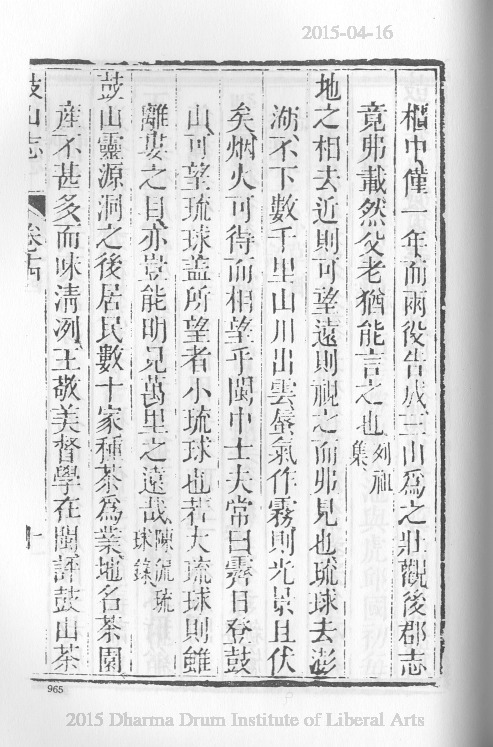 2015-04-16
樞中僅一年而兩役告成三山爲之壯觀後郡志
竟弗載然父老猶能言之也列祖集
地之相去近則可望遠則視之而弗見也琉球去澎
湖不下數千里山川出雲蜃氣作霧則光景且伏
矣烟火可得而相望乎閩中士大常曰霽日登鼓
山可望琉球蓋所望者小琉球也若大琉球則雖
離婁之目亦豈能明見萬里之遠哉陳侃琉球錄
鼓山靈源洞之後居民數十家種茶爲業地名茶園
產不甚多而味清冽王敬美督學在閩評鼓山茶
鼓山志 卷 十一
965
2015 Dharma Drum Institute of Liberal Arts